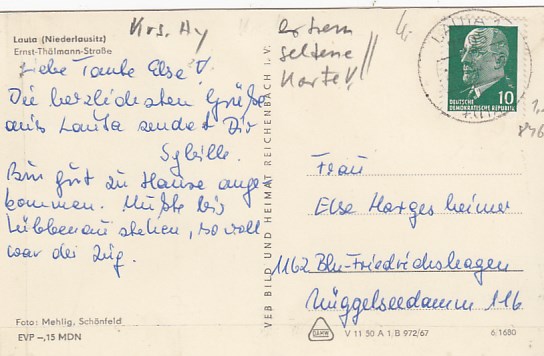 Krs. Hy
extrem
seltene
Karte!!
Lauta (Niederlausitz)
Ernst-Thälmann-Straße
Liebe Tante Else!
Die herzlichsten Grüße
aus Lauta sendet Dir
Sybille.
Bin gut zu Hause ange-
kommen. Mußte bis
Lübbenau stehen, so voll
war der Zug.
Foto: Mehlig, Schönfeld
EVP -,15 MDN
VEB BILD UND HEIMAT REICHENBACH I. V.
LAUTA
10
DEUTSCHE
DEMOKRATISCHE REPUBLIK
Frau
Else Hargesheimer
1162 Bln-Friedrichshagen
Müggelseedamm 116
V 11 50 A 1/B 972/67
6/1680